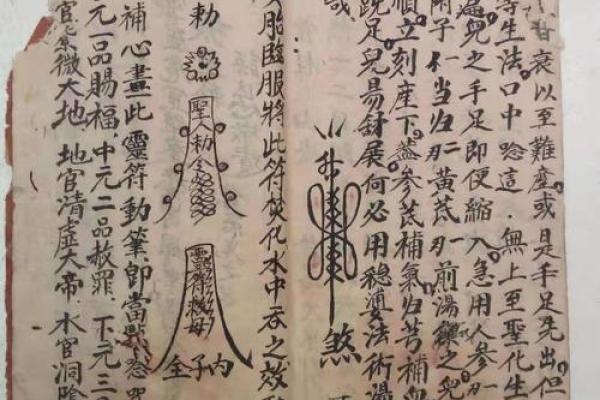 衰以至難產或是手足先出但
等生法口中唸這．無上至聖化生
遍兒之手足即便縮入急用人參一
附子 当归 黄芪一 煎湯 之兒
順立刻座下盖参芪補氣归芎補血
足兒易舒展何必用穩婆法術湯
哉
煞
胎臨服將此符焚化水中吞之效
勅
聖人勅令
靈符救母
全子内
補心畫此靈符動筆即當默念
元一品賜福中元二品赦罪下元三
宮紫微大地地官清虛大帝水官洞陰